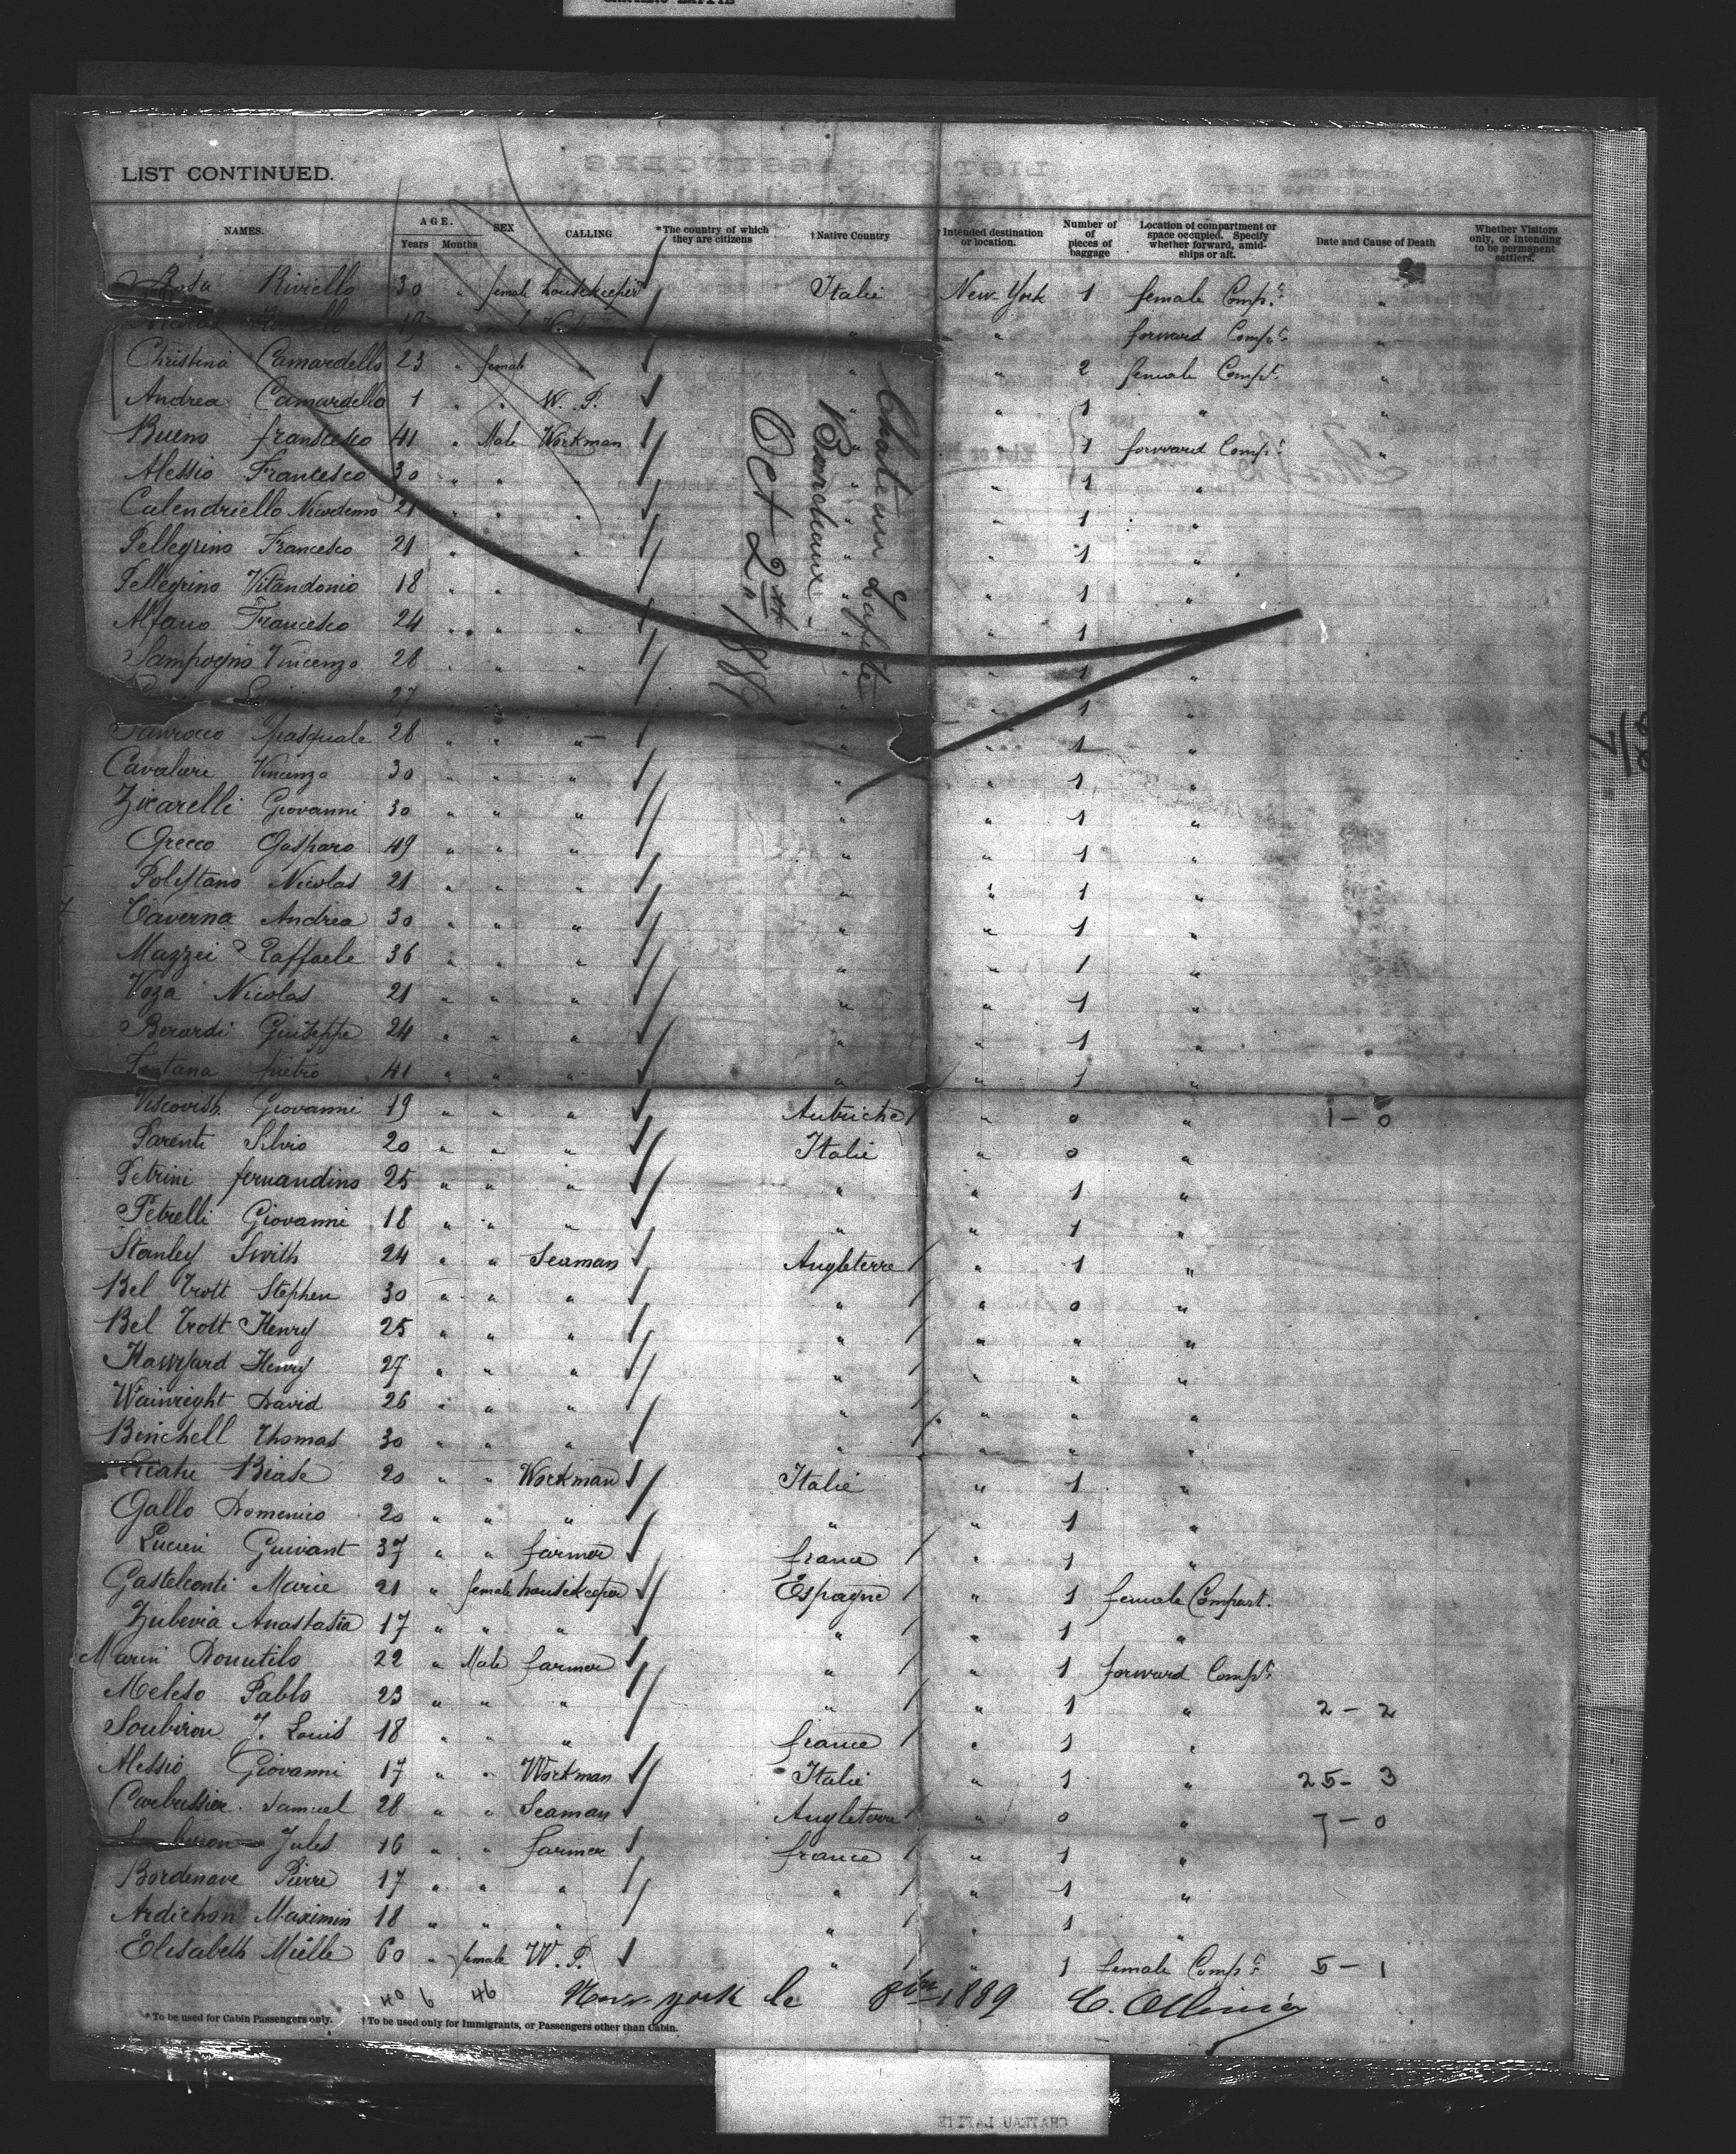 LIST CONTINUED.
NAMES. AGE. Years Months SEX CALLING *The country of which they are citizens †Native Country †Intended destination or location. Number of pieces of baggage Location of compartment or space occupied. Specify whether forward, amidships or aft. Date and Cause of Death Whether Visitors only, or intending to be permanent settlers.
Rosa Riviello 30 " female housekeeper Italie New-York 1 female Compt. "
" " forward Compt. "
Christina Camardello 23 " female " " " 2 female Compt. "
Andrea Camardello 1 " " W. P. " " 1 " "
Bueno francesco 41 " Male Workman " " 1 forward Compt. "
Alessio Francesco 30 " " " " " 1 "
Calendriello Nicodemo 21 " " " " " 1 "
Pellegrino Francesco 21 " " " " " 1 "
Pellegrino Vitandonio 18 " " " " " 1 "
Alfano Francesco 24 " " " " " 1 "
Sampogno Vincenzo 28 " " " " " 1 "
27 " " 1 "
Pasquale 28 " " " " " 1 "
Cavalieri Vincenzo 30 " " " " " 1 "
Zicarelli Giovanni 30 " " " " " 1 "
Grecco Gasparo 49 " " " " " 1 "
Nicolas 21 " " " " " 1 "
Taverna Andrea 30 " " " " " 1 "
Mazzei Raffaele 36 " " " " " 1 "
Voza Nicolas 21 " " " " " 1 "
Berardi Guiseppe 24 " " " " " 1 "
Fontana pietro 41 " " " " " 1 "
Viscovish Giovanni 19 " " " Autriche " 0 " 1-0
Parenti Silvio 20 " " " Italie " 0 "
Petrini fernandino 25 " " " " " 1 "
Petrelli Giovanni 18 " " " " " 1 "
Stanley Smith 24 " " Seaman Angleterre " 1 "
Bel Trott Stephen 30 " " " " " 0 "
Bel Trott Henry 25 " " " " " " "
Henry 27 " " " " " " "
Wainright David 26 " " " " " " "
Binchell Thomas 30 " " " " " " "
Biase 20 " " Workman Italie " 1 "
Gallo Domenico 20 " " " " " 1 "
Lucien Guivant 37 " " farmer france " 1 "
Gastelconti Marie 21 " female housekeeper Espagne " 1 female Compart.
Zubevia Anastasia 17 " " " " " 1 "
Marin Donutilo 22 " Male farmer " " 1 forward Compt.
Meleso Pablo 23 " " " " " 1 " 2-2
Soubirou J. Louis 18 " " " france " 1 "
Alessio Giovanni 17 " " Workman Italie " 1 " 25-3
Samuel 28 " " Seaman Angleterre " 0 " 7-0
Jules 16 " " farmer france " 1 "
Bordenave Pierre 17 " " " " " 1 "
Ardichon Maximin 18 " " " " " 1 "
Elisabeth Mielle 60 " female W. P. " " 1 female Compt. 5-1
40 6 46 New-york le 8bre 1889 C. Ollivier
*To be used for Cabin Passengers only. †To be used only for Immigrants, or Passengers other than Cabin.
Chateau Lafite
Bordeaux -
Oct 2nd 1889
CHATEAU LAFITE